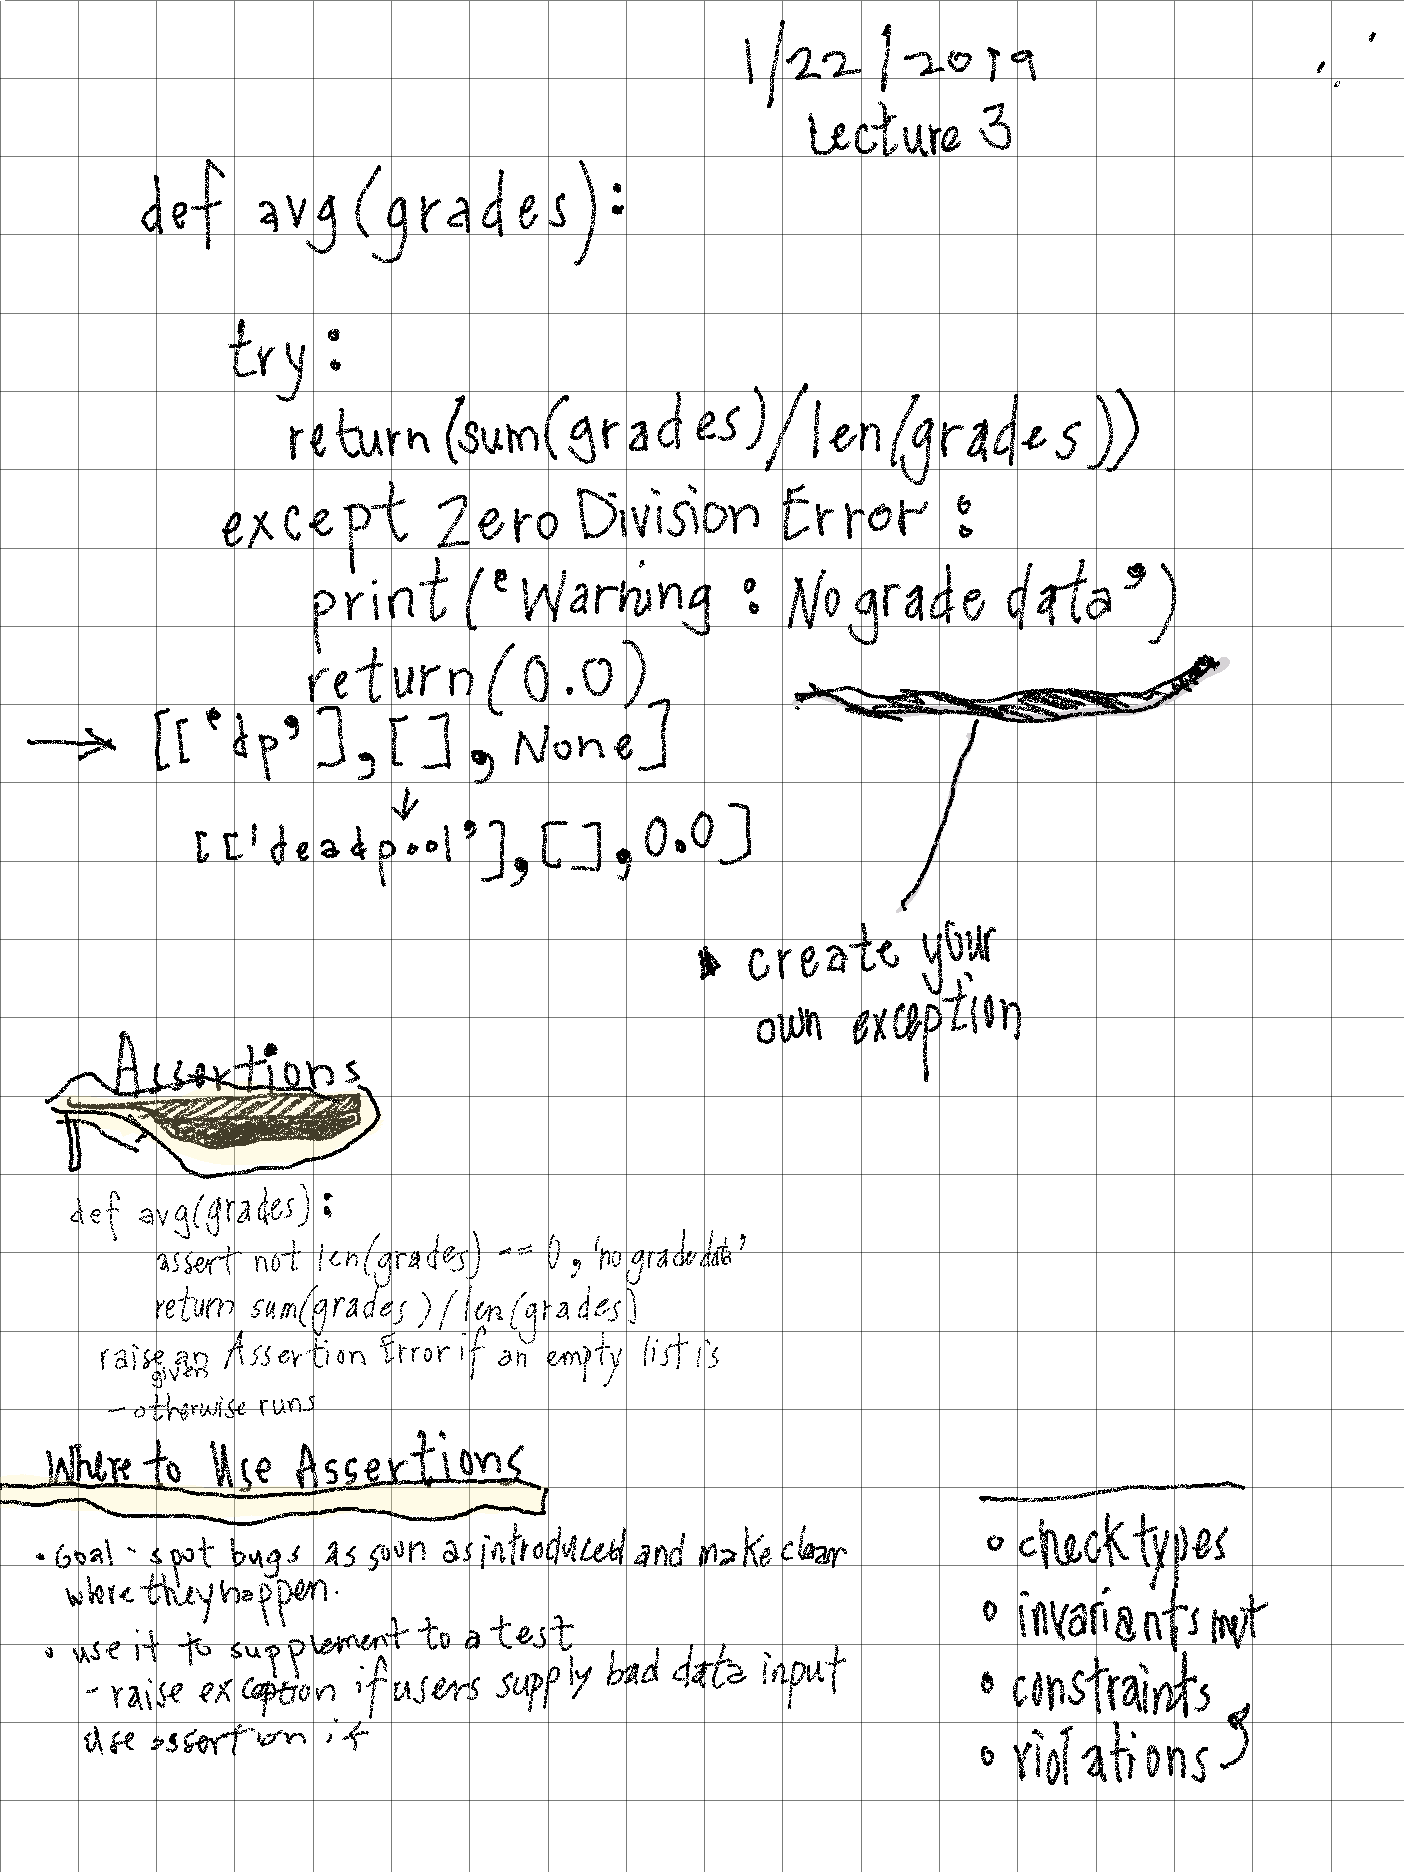 1/22/2019
Lecture 3
def avg(grades):
try:
return(sum(grades)/len(grades))
except Zero Division Error:
print('Warning: No grade data')
return(0.0)
→ [['dp'],[],None]
↓
[['deadpool'],[],0.0]
create your
own exception
Assertions
def avg(grades):
assert not len(grades) == 0, 'no grade data'
return sum(grades)/len(grades)
raise an Assertion Error if an empty list is
given
- otherwise runs
Where to Use Assertions
• Goal - spot bugs as soon as introduced and make clear
where they happen.
• use it to supplement to a test
- raise exception if users supply bad data input
use assertion if
• check types
• invariants met
• constraints
• violations